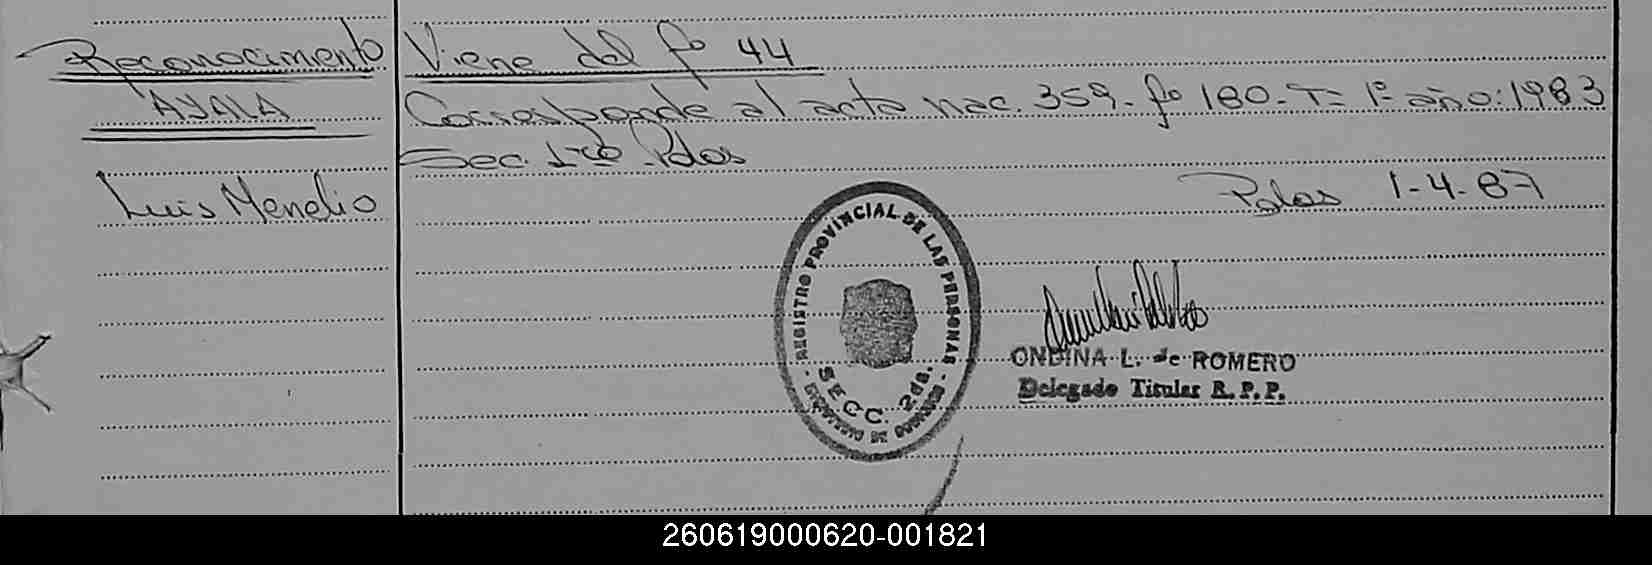 Reconocimento
AYALA
Luis Menelio
Viene del fº 44
Corresponde al acta nac. 359 - fº 180 - T= 1º año: 1983
Sec. 1ra Pdas
Pdas 1-4-87
REGISTRO PROVINCIAL DE LAS PERSONAS
SECC. 2da.
ONDINA L. de ROMERO
Delegado Titular R. P. P.
260619000620-001821